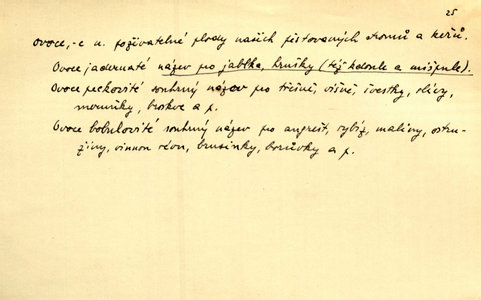 25
ovoce,-e n. poživatelné plody našich pěstovaných stromů a keřů.
Ovoce jadernaté název pro jablka, hrušky (též kdoule a mišpule).
Ovoce peckovité souhrný název pro třešně, višně, švestky, slívy,
meruňky, broskve a p.
Ovoce bobulovité souhrný název pro angrešt, rybíz, maliny, ostru-
žiny, vinnou révu, brusinky, borůvky a p.